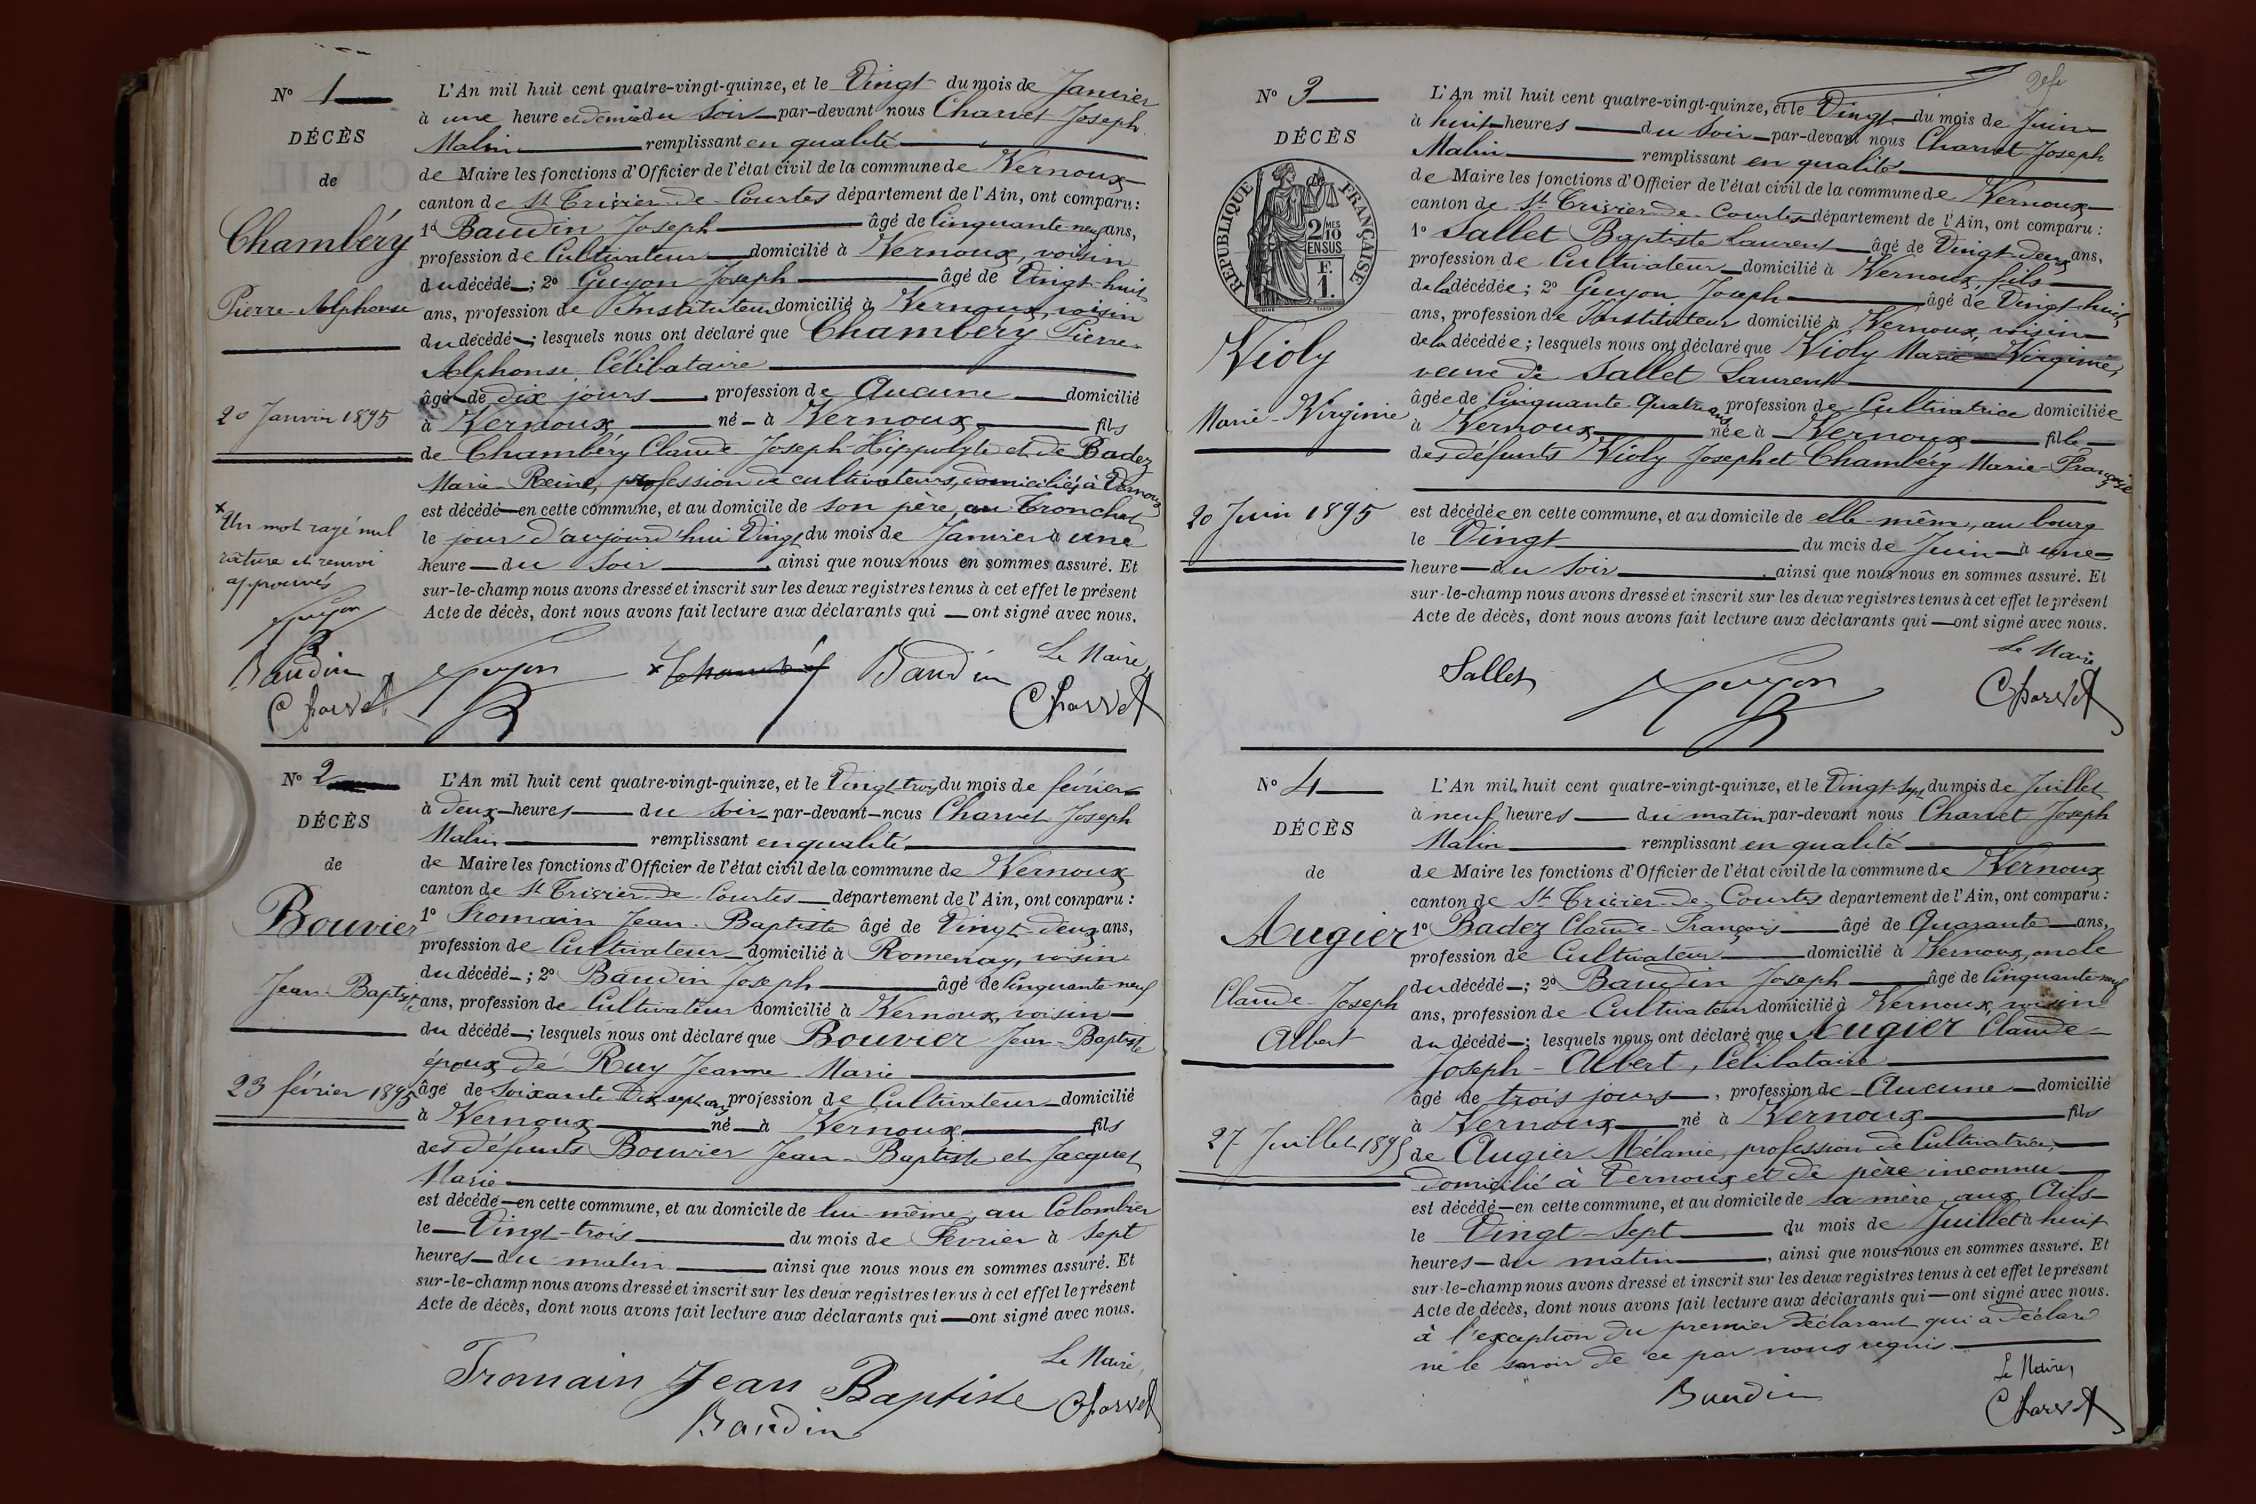 N° 1
DÉCÈS
de
Chambéry
Pierre-Alphonse
20 Janvier 1895
Un mot rayé nul
rature et renvoi
approuvés
Guyon
Baudin
Charvet
L'An mil huit cent quatre-vingt-quinze, et le Vingt du mois de Janvier
à une heure et demie du soir par-devant nous Charvet Joseph
Malin remplissant en qualité
de Maire les fonctions d'Officier de l'état civil de la commune de Vernoux
canton de St Trivier-de-Courtes département de l'Ain, ont comparu :
1° Baudin Joseph âgé de Cinquante neuf ans,
profession de Cultivateur domicilié à Vernoux, voisin
du décédé ; 2° Guyon Joseph âgé de Vingt-huit
ans, profession de Instituteur domicilié à Vernoux, voisin
du décédé ; lesquels nous ont déclaré que Chambéry Pierre-
Alphonse Célibataire
âgé de dix jours, profession de Aucune domicilié
à Vernoux né à Vernoux fils
de Chambéry Claude Joseph Hippolyte et de Badez
Marie-Reine, profession de cultivateurs, domiciliés à Vernoux
est décédé en cette commune, et au domicile de son père, au Tronchat
le jour d'aujourd'hui Vingt du mois de Janvier à une
heure du Soir, ainsi que nous nous en sommes assuré. Et
sur-le-champ nous avons dressé et inscrit sur les deux registres tenus à cet effet le présent
Acte de décès, dont nous avons fait lecture aux déclarants qui ont signé avec nous.
Guyon Baudin Le Maire,
Charvet
N° 2
DÉCÈS
de
Bouvier
Jean-Baptiste
23 février 1895
L'An mil huit cent quatre-vingt-quinze, et le Vingt-trois du mois de février
à deux heures du soir par-devant nous Charvet Joseph
Malin remplissant en qualité
de Maire les fonctions d'Officier de l'état civil de la commune de Vernoux
canton de St Trivier-de-Courtes département de l'Ain, ont comparu :
1° Fromain Jean-Baptiste âgé de Vingt-deux ans,
profession de Cultivateur domicilié à Romenay, voisin
du décédé ; 2° Baudin Joseph âgé de Cinquante-neuf
ans, profession de Cultivateur domicilié à Vernoux, voisin
du décédé ; lesquels nous ont déclaré que Bouvier Jean-Baptiste
époux de Ruy Jeanne-Marie
âgé de Soixante Dix sept ans profession de Cultivateur domicilié
à Vernoux né à Vernoux fils
des défunts Bouvier Jean-Baptiste et Jacquet
Marie
est décédé en cette commune, et au domicile de lui-même, au Colombier
le Vingt-trois du mois de Février à sept
heures du matin ainsi que nous nous en sommes assuré. Et
sur-le-champ nous avons dressé et inscrit sur les deux registres tenus à cet effet le présent
Acte de décès, dont nous avons fait lecture aux déclarants qui ont signé avec nous.
Fromain Jean Baptiste Le Maire,
Baudin Charvet
N° 3
DÉCÈS
RÉPUBLIQUE FRANÇAISE
2 MES
10
EN SUS
F.
1.
Violy
Marie-Virginie
20 Juin 1895
L'An mil huit cent quatre-vingt-quinze, et le Vingt du mois de Juin
à huit heures du soir par-devant nous Charvet Joseph
Malin remplissant en qualité
de Maire les fonctions d'Officier de l'état civil de la commune de Vernoux
canton de St Trivier-de-Courtes département de l'Ain, ont comparu :
1° Sallet Baptiste Laurent âgé de Vingt-deux ans,
profession de Cultivateur domicilié à Vernoux, fils
de la décédée ; 2° Guyon Joseph âgé de Vingt-huit
ans, profession de Instituteur domicilié à Vernoux, voisin
de la décédée ; lesquels nous ont déclaré que Violy Marie-Virginie,
veuve de Sallet Laurent
âgée de Cinquante-Quatre ans profession de Cultivatrice domiciliée
à Vernoux née à Vernoux fille
des défunts Violy Joseph et Chambéry Marie-Françoise
est décédée en cette commune, et au domicile de elle-même, au bourg
le Vingt du mois de Juin à une
heure du Soir, ainsi que nous nous en sommes assuré. Et
sur-le-champ nous avons dressé et inscrit sur les deux registres tenus à cet effet le présent
Acte de décès, dont nous avons fait lecture aux déclarants qui ont signé avec nous.
Le Maire
Sallet Guyon Charvet
N° 4
DÉCÈS
de
Augier
Claude-Joseph
Albert
27 Juillet 1895
L'An mil huit cent quatre-vingt-quinze, et le Vingt-Sept du mois de Juillet
à neuf heures du matin par-devant nous Charvet Joseph
Malin remplissant en qualité
de Maire les fonctions d'Officier de l'état civil de la commune de Vernoux
canton de St Trivier-de-Courtes département de l'Ain, ont comparu :
1° Badez Claude-François âgé de Quarante ans,
profession de Cultivateur domicilié à Vernoux, oncle
du décédé ; 2° Baudin Joseph âgé de Cinquante-neuf
ans, profession de Cultivateur domicilié à Vernoux, voisin
du décédé ; lesquels nous ont déclaré que Augier Claude-
Joseph-Albert, Célibataire
âgé de trois jours, profession de Aucune domicilié
à Vernoux né à Vernoux fils
de Augier Mélanie, profession de Cultivatrice,
domicilié à Vernoux et de père inconnu
est décédé en cette commune, et au domicile de sa mère, aux
le Vingt-Sept du mois de Juillet à huit
heures du matin, ainsi que nous nous en sommes assuré. Et
sur-le-champ nous avons dressé et inscrit sur les deux registres tenus à cet effet le présent
Acte de décès, dont nous avons fait lecture aux déclarants qui ont signé avec nous.
à l'exception du premier déclarant qui a déclaré
ne le savoir de ce par nous requis.
Le Maire,
Baudin Charvet